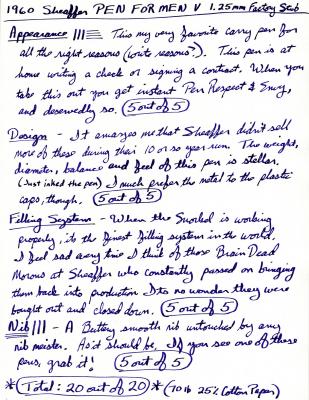 1960 Sheaffer PEN FOR MEN V 1.25mm Factory Stub
Appearance ||| This my very favorite carry pen for
all the right reasons (write reasons?). This pen is at
home writing a check or signing a contract. When you
take this out you get instant Pen Respect & Envy,
and deservedly so. (5 out of 5)
Design - It amazes me that Sheaffer didn't sell
more of these during their 10 or so year run. The weight,
diameter, balance and feel of this pen is stellar.
(Just inked the pen) I much prefer the metal to the plastic
caps, though. (5 out of 5)
Filling System - When the Snorkel is working
properly, its the finest filling system in the world.
I feel sad every time I think of those Brain Dead
Morons at Sheaffer who constantly passed on bringing
them back into production. Its no wonder they were
bought out and closed down. (5 out of 5)
Nib ||| - A Buttery smooth nib untouched by any
nib meister. As it should be. If you see one of these
pens, grab it! (5 out of 5)
*(Total: 20 out of 20)* (70 lb 25% Cotton Paper)